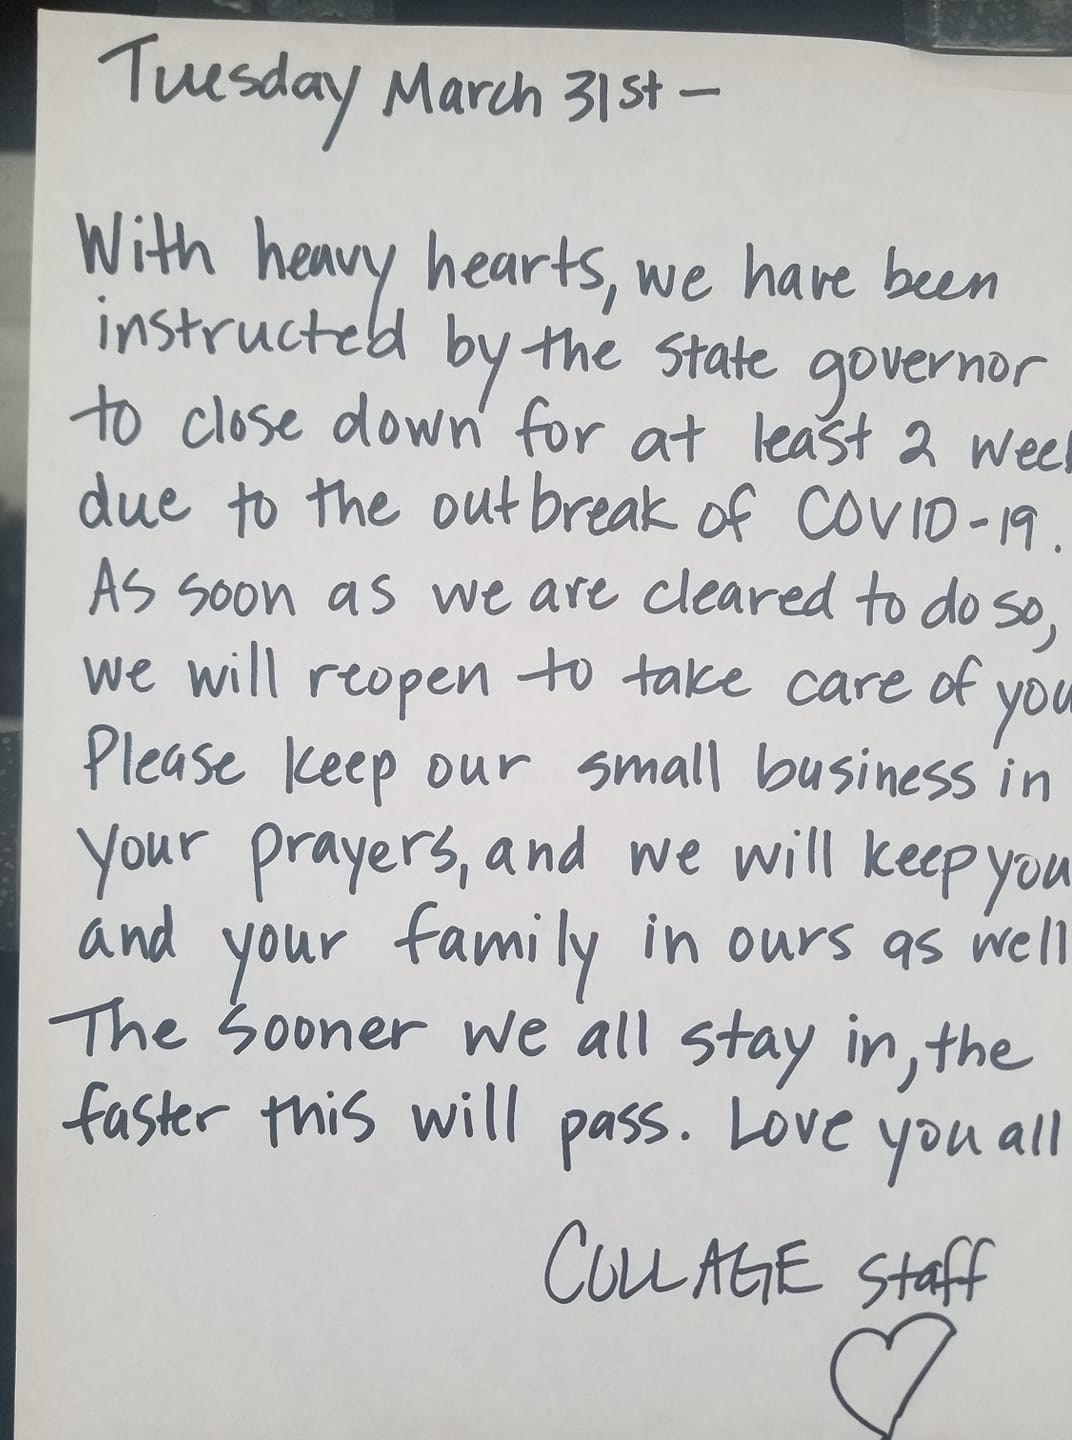 Tuesday March 31st -
With heavy hearts, we have been
instructed by the state governor
to close down for at least 2 week
due to the outbreak of COVID-19.
As soon as we are cleared to do so,
we will reopen to take care of you
Please keep our small business in
your prayers, and we will keep you
and your family in ours as well
The sooner we all stay in, the
faster this will pass. Love you all
COLLAGE staff